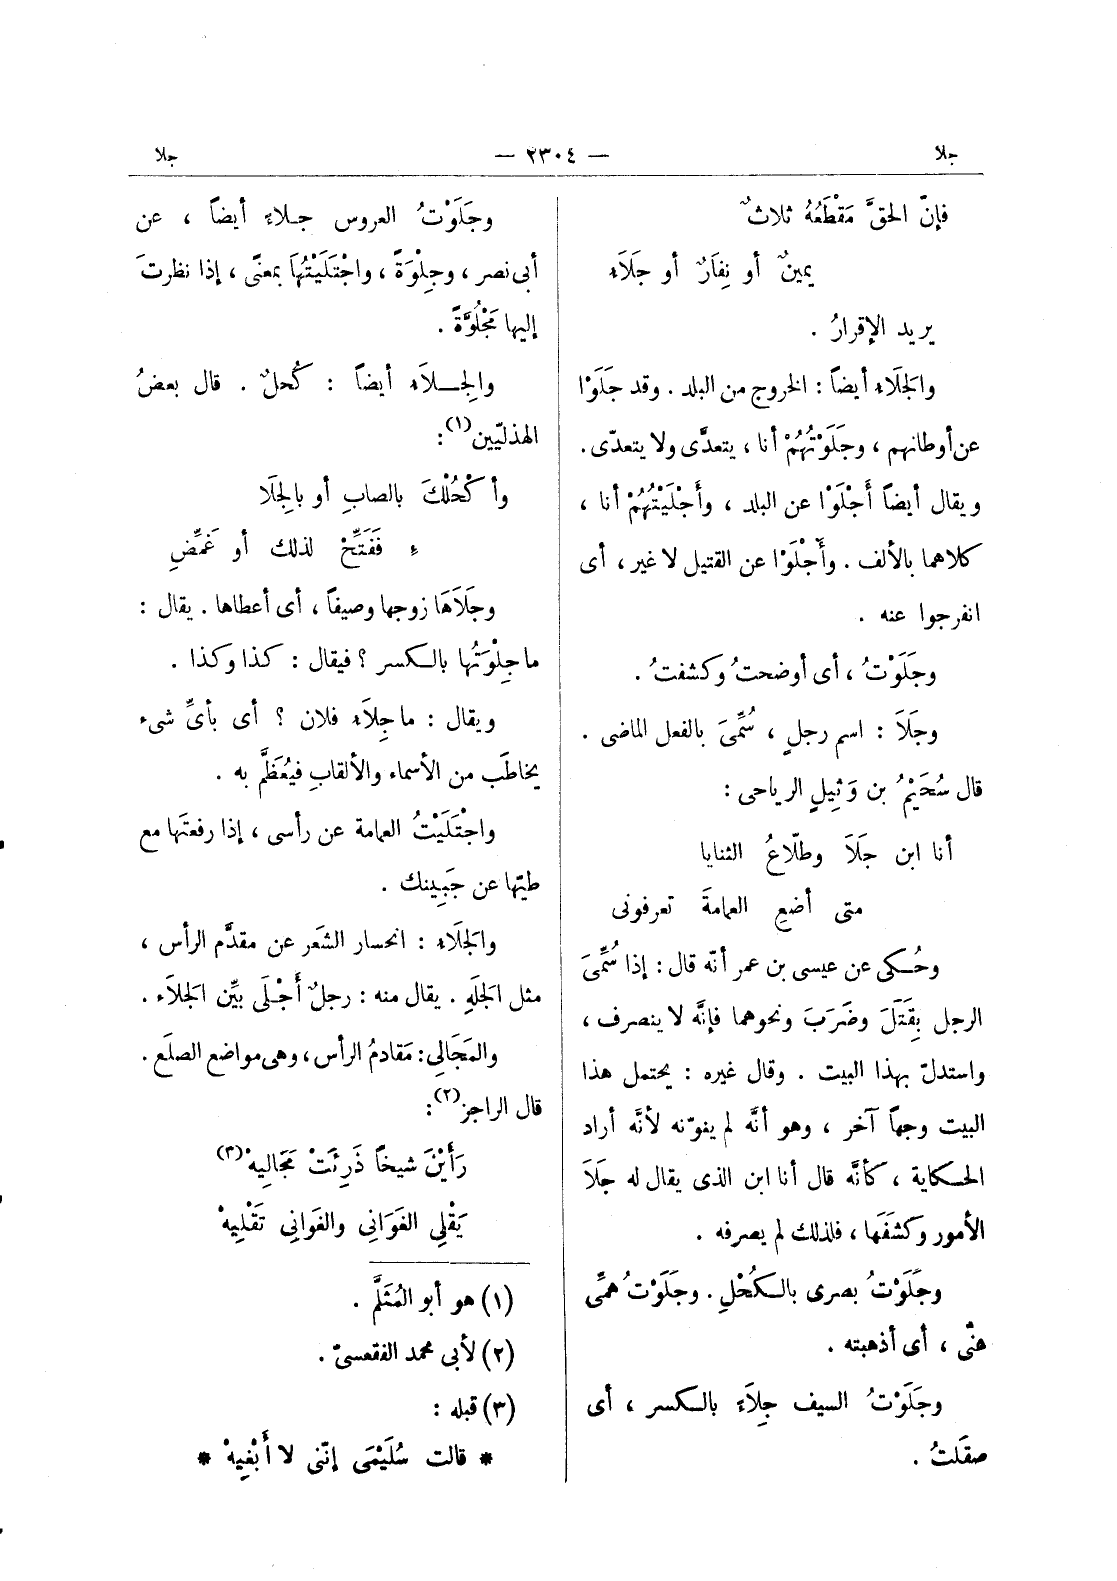 جلا — ٢٣٠٤ — جلا
فإنّ الحقَّ مَقْطَعُهُ ثلاثٌ
يمينٌ أو نِفَارٌ أو جَلَاءِ
يريد الإقرارُ .
والجَلَاء أيضاً : الخروج من البلد . وقد جَلَوْا
عن أوطانهم ، وجَلَوْتُهُمْ أنا ، يتعدَّى ولا يتعدّى .
ويقال أيضاً أَجْلَوْا عن البلد ، وأَجْلَيْتُهُمْ أنا ،
كلاهما بالألف . وأَجْلَوْا عن القتيل لا غير ، أى
انفرجوا عنه .
وجَلَوْتُ ، أى أوضحتُ وكشفتُ .
وجَلَا : اسم رجلٍ ، سُمِّىَ بالفعل الماضى .
قال سُحَيْمُ بن وَثِيلٍ الرياحى :
أنا ابن جَلَا وطلّاعُ الثنايا
متى أضعِ العمامةَ تعرفونى
وحُكى عن عيسى بن عمر أنّه قال : إذا سُمِّىَ
الرجل بِقَتَلَ وضَرَبَ ونحوهما فإنَّه لا ينصرف ،
واستدلّ بهذا البيت . وقال غيره : يحتمل هذا
البيت وجهاً آخر ، وهو أنَّه لم ينوّنه لأنَّه أراد
الحكاية ، كأنَّه قال أنا ابن الذى يقال له جَلَا
الأمور وكَشَفَها ، فلذلك لم يصرفه .
وجَلَوْتُ بصرى بالكُحْلِ . وجَلَوْتُ همِّى
عنّى ، أى أذهبته .
وجَلَوْتُ السيف جِلَاءً بالكسر ، أى
صقَلتُ .
وجَلَوْتُ العروس جِلاءً أيضاً ، عن
أبى نصر ، وجِلْوَةً ، واجْتَلَيْتُهَا بمعنًى ، إذا نظرتَ
إليها مَجْلُوَّةً .
والجِلَاءِ أيضاً : كُحلٌ . قال بعضُ
الهذليّين(١) :
وأكْحُلْكَ بالصابِ أو بالجِلَا
ءِ فَفَتِّحْ لذلك أو غَمِّضِ
وجَلَاهَا زوجها وصيفاً ، أى أعطاها . يقال :
ما جِلْوَتُها بالكسر ؟ فيقال : كذا وكذا .
ويقال : ما جِلَاءِ فلان ؟ أى بأىِّ شىء
يخاطَب من الأسماء والألقابِ فيُعَظَّم به .
واجْتَلَيْتُ العمامة عن رأسى ، إذا رفعتَها مع
طيّها عن جَبِينك .
والجَلَاء : انحسار الشعَر عن مقدَّم الرأس ،
مثل الجَلَهِ . يقال منه : رجلٌ أَجْلَى بيِّن الجَلَاء .
والمَجَالِى : مَقادمُ الرأس ، وهى مواضع الصلَع .
قال الراجز(٢) :
رَأَيْنَ شيخاً ذَرِئَتْ مَجَالِيهْ(٣)
يَقْلِى الغَوَانِى والغَوانِى تَقْلِيهْ
(١) هو أبو المُثَلَّم .
(٢) لأبى محمد الفقعسىّ .
(٣) قبله :
* قالت سُلَيْمَى إنّنى لا أَبْغِيهْ *